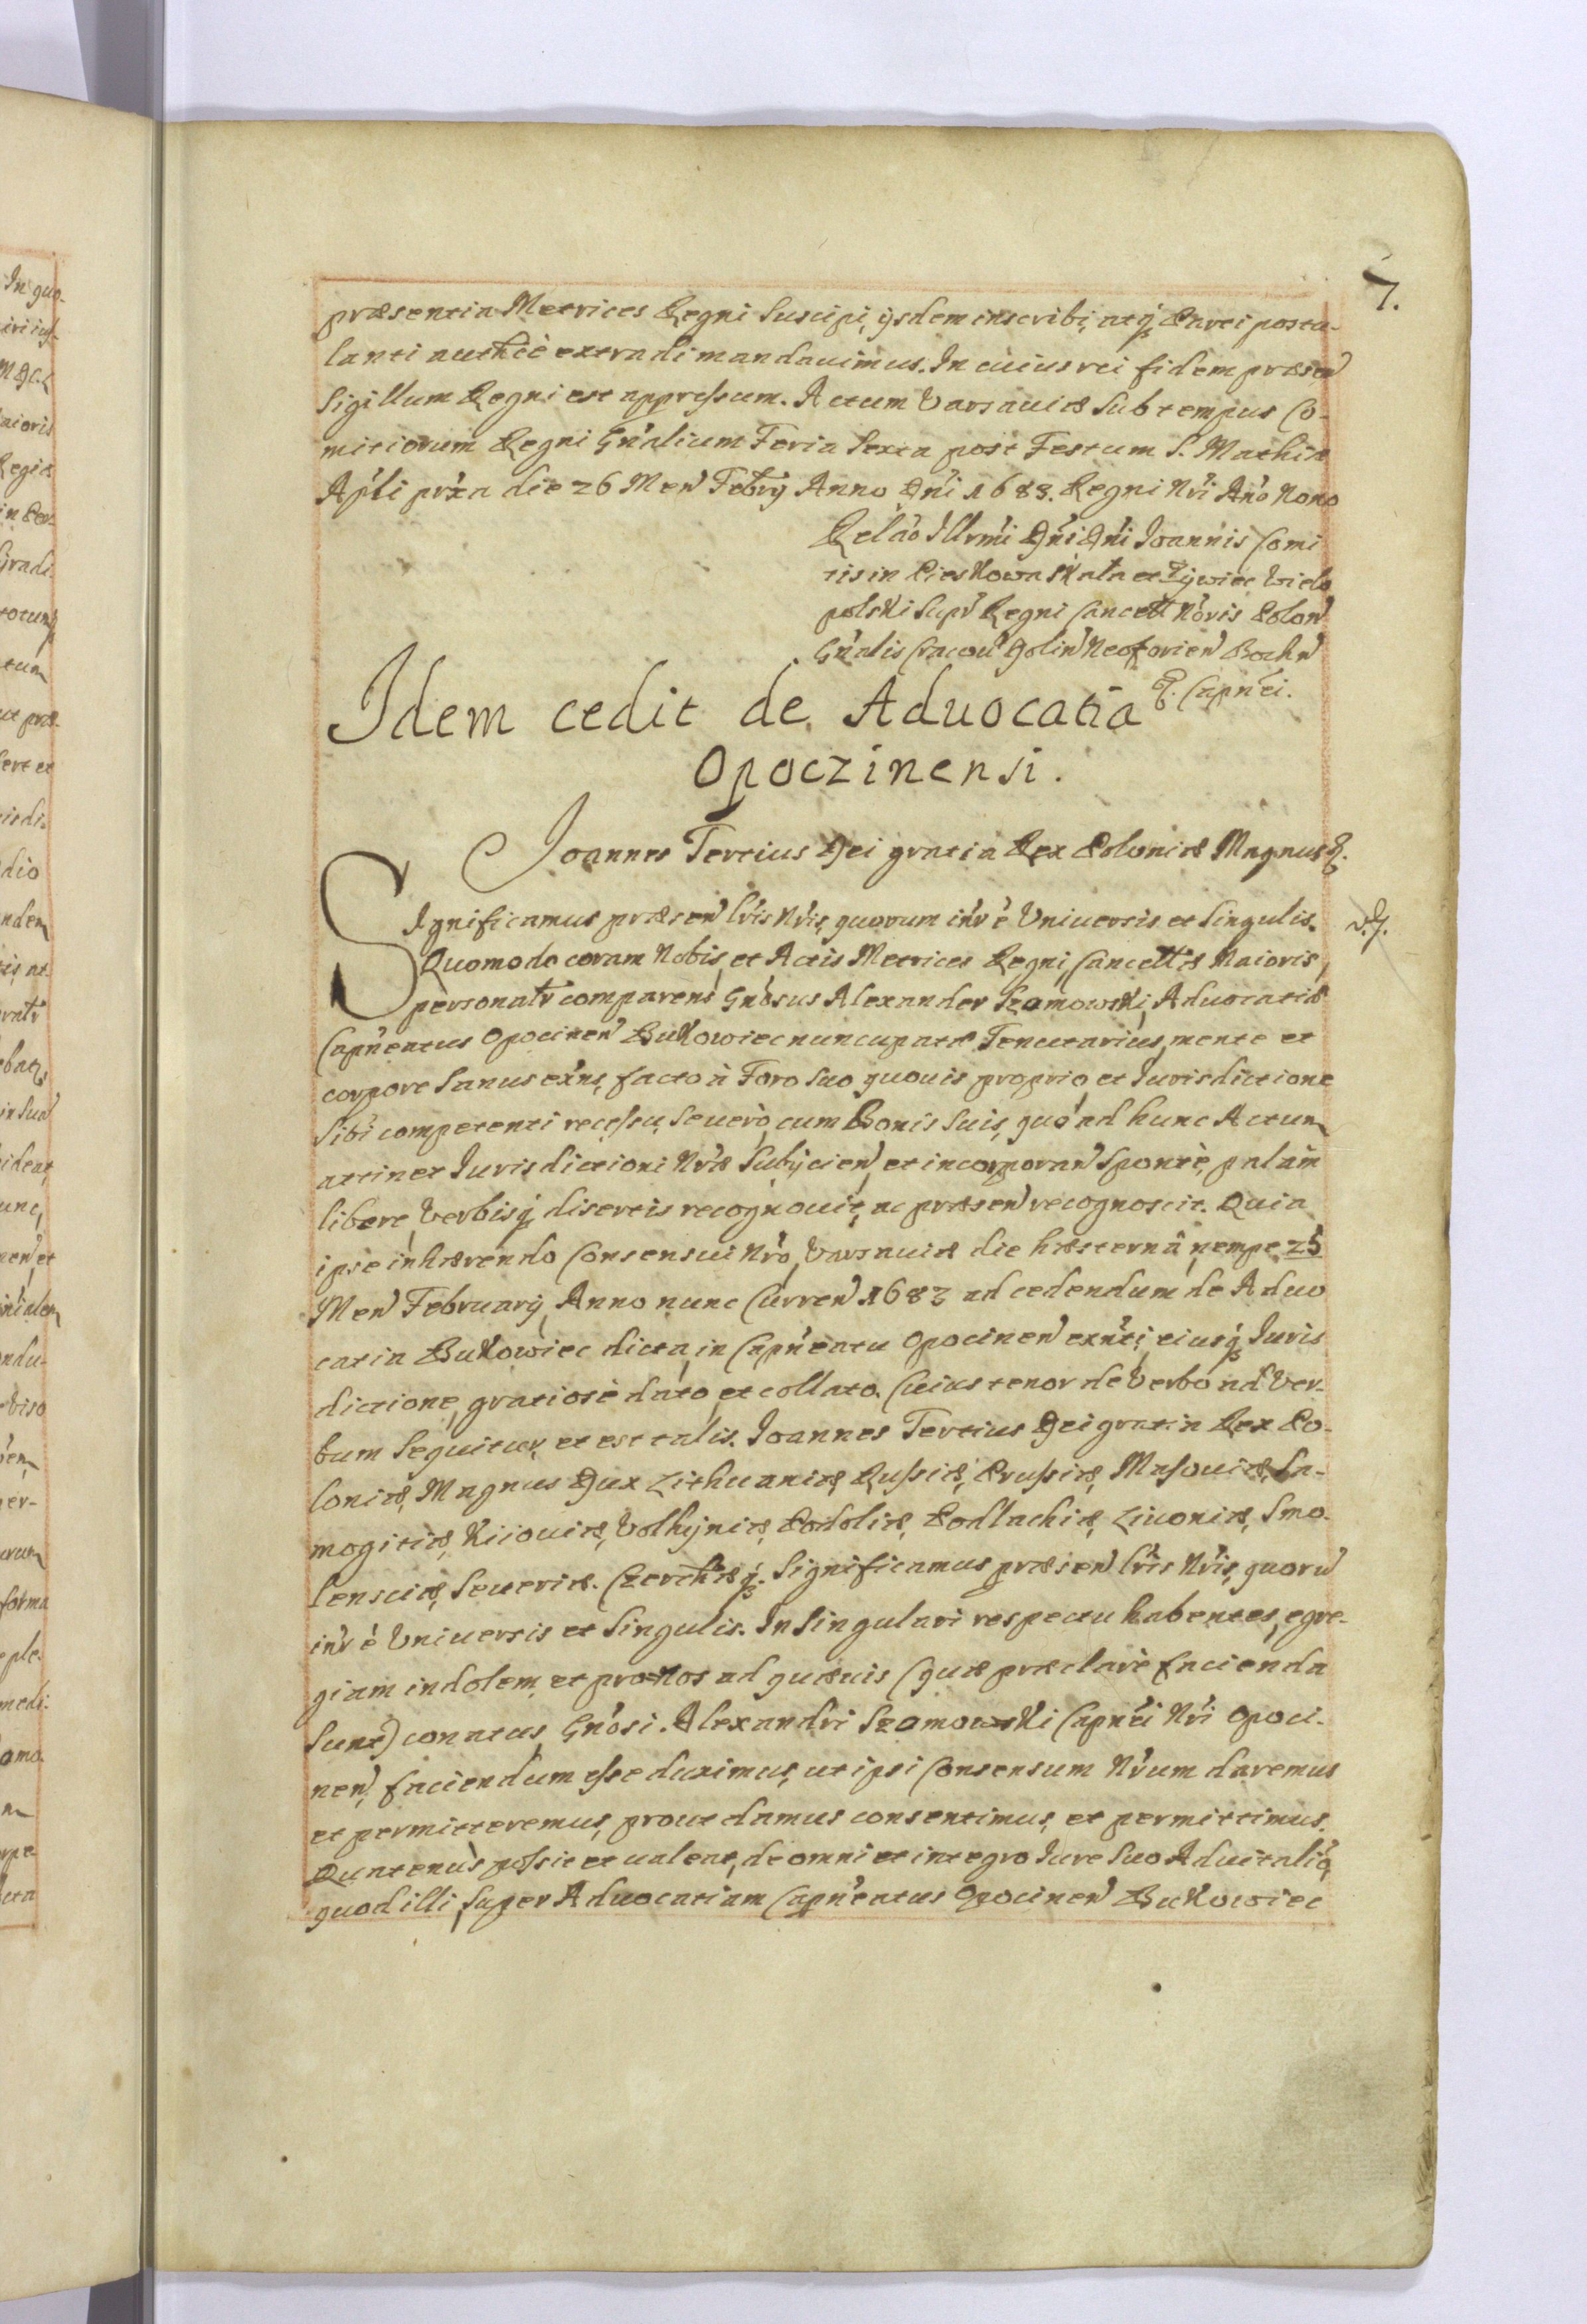 7.
præsentia Metrices Regni suscipi, ijsdem inscribi, atq́ Parti postu-
lanti authcè extradi mandauimus. In cuius rei fidem præsen̄
Sigillum Regni est appressum. Actum Varsauiæ Sub tempus Co-
mitiorum Regni Gn̄alium Feria Sexta post Festum S. Mathiæ
Ap̄li prx̄a die 26 Men̄ Febrij Anno Dn̄i 1683. Regni Nr̄i An̄o Nono
Relāo Illrm̄i Dn̄i Dn̄i Joannis Comi
tis in Pieskowa Skała et Zÿwiec Wielo
polski Supr̄ Regni Cancell Nōris Polon̄
Gn̄alis Cracou̇ Dolin̄ Neoforien̄ Bochn̄
&. Capn̄ei.
Idem cedit de Aduocatia
Opoczinensi.
Joannes Tertius Dei gratia Rex Poloniæ Magnus &.
Significamus præsen̄ lr̄is Nr̄is, quorum in̄r ē Vniuersis et Singulis.
Quomodo coram Nobis, et Actis Metrices Regni, Cancellæ Maioris,
personalr̄ comparens Gn̄osus Alexander Szamowski, Aduocatiæ
Capn̄eatus Opocinen̄ Bukowiec nuncupatæ Tenutarius, mente et
corpore sanus ex̄ns, facto à Foro suo quouis proprio, et Jurisdictione
Sibi competenti recessu, Se uerò, cum Bonis suis, quó ad hunc Actum
attinet Jurisdictioni Nr̄æ Subijcien̄, et incorporan̄ Spontè, palàm
libere, Verbisq́ disertis recognouit, ac præsen̄ recognoscit. Quia
ipse inhærendo Consensui Nr̄o, Varsauiæ die hæsternâ, nempe 25
Men̄ Februarij, Anno nunc Curren̄ 1683 ad cedendum de Aduo
catia Bukowiec dicta, in Capn̄eatu Opocinen̄ exn̄ti, eiusq́ Juris
dictione, gratiosè dato, et collato. Cuius tenor de Verbo ad Ver-
bum Sequitur, et est talis. Joannes Tertius Dei gratia Rex Po-
loniæ, Magnus Dux Lithuaniæ, Russiæ, Prussiæ, Masouiæ, Sa-
mogitiæ, Kiiouiæ, Volhÿniæ, Podoliæ, Podlachiæ, Liuoniæ, Smo-
lensciæ, Seueriæ. Czerchæq́. Significamus præsen̄ lr̄is Nr̄is, quorū
in̄r ē Vniuersis et Singulis. In Singulari respectu habentes, egre-
giam indolem, et pronos ad quæuis (quæ præclarè facienda
Sunt) conatus, Gn̄osi. Alexandri Szamowski Capn̄ei Nr̄i Opoci-
nen̄, faciendum esse duximus, ut ipsi Consensum Nr̄um daremus
et permitteremus, prout damus consentimus, et permittimus.
Quatenùs possit et ualeat, de omni et integro Jure Suo Aduitalio,
quod illi, Super Aduocatiam Capn̄eatus Opocinen̄ Bukowiec